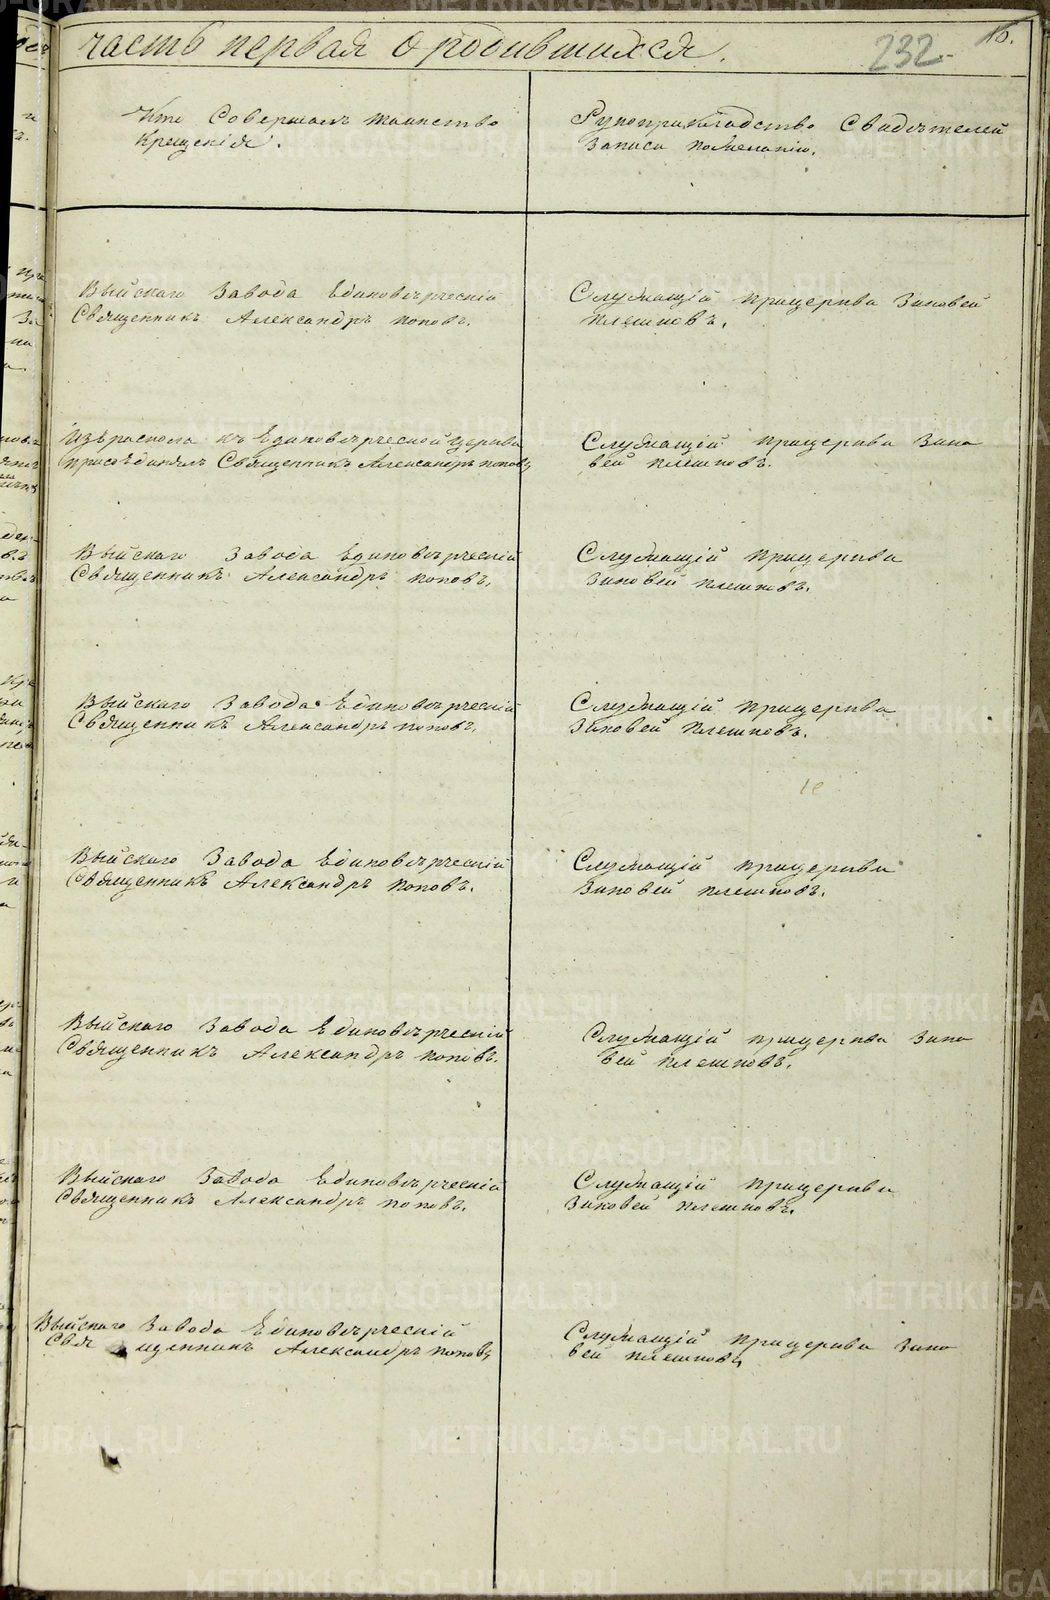 часть первая о родившихся.
232
16.
Кто Совершалъ таинство
крещенія.
Рукоприкладство Свидѣтелей
записи пожеланію.
Выйскаго Завода Единовѣрческій
Священникъ Александръ поповъ.
Служащій прицеркви Зиновей
плешковъ.
Изъ раскола къ Единовѣрческой Церкви
присоединялъ Священникъ Александръ поповъ
Служащій прицеркви Зино
вей плешковъ.
Выйскаго Завода Единовѣрческій
Священникъ Александръ поповъ.
Служащій прицеркви
Зиновей плешковъ.
Выйскаго Завода Единовѣрческій
Священникъ Александръ поповъ.
Служащій прицеркви
Зиновей плешковъ.
Выйскаго Завода Единовѣрческій
Священникъ Александръ поповъ.
Служащій прицеркви
Зиновей плешковъ.
Выйскаго Завода Единовѣрческій
Священникъ Александръ поповъ.
Служащій прицеркви Зино
вей плешковъ.
Выйскаго Завода Единовѣрческій
Священникъ Александръ поповъ.
Служащій прицеркви
Зиновей плешковъ.
Выйскаго Завода Единовѣрческій
Свя щенникъ Александръ поповъ
Служащій прицеркви Зино
вей плешковъ